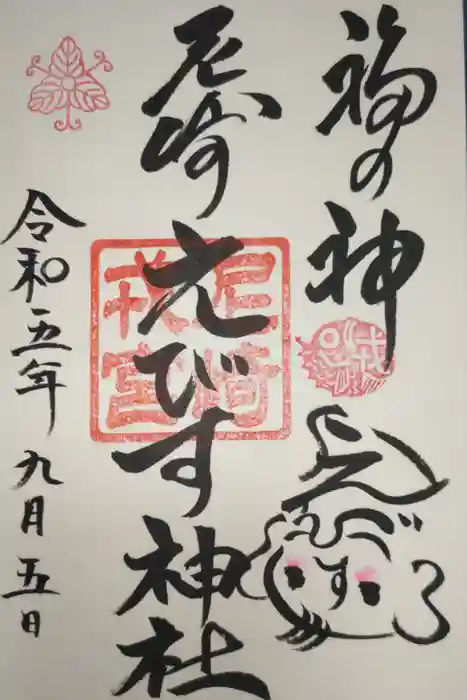 福の神
えびす
戎
尼崎えびす神社
尼崎
戎宮
令和五年 九月 五日